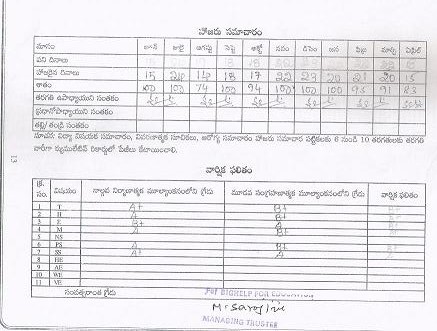 హాజరు సమాచారం
మాసం జూన్ జులై ఆగష్టు సెప్టె అక్టో నవం డిసెం జన ఫిబ్ర మార్చి ఏప్రిల్
పని దినాలు
హాజరైన దినాలు 15 24 14 18 17 22 23 20 21 20 13
శాతం 100 100 74 100 94 100 100 100 95 91 83
తరగతి ఉపాధ్యాయుని సంతకం
ప్రధానోపాధ్యాయుని సంతకం
తల్లి/తండ్రి సంతకం
సూచన: విద్యా విషయక సమాచారం, వివరణాత్మక సూచికలు, ఆరోగ్య సమాచారం హాజరు సమాచార పట్టికలకు 6 నుండి 10 తరగతులకు తరగతి
వారీగా క్యుములేటివ్ రికార్డులో పేజీలు కేటాయించాలి.
13
వార్షిక ఫలితం
క్ర. సం. విషయం నాల్గవ నిర్మాణాత్మక మూల్యాంకనంలోని గ్రేడు మూడవ సంగ్రహణాత్మక మూల్యాంకనంలోని గ్రేడు వార్షిక ఫలితం
1 T A+ B+
2 H A
3 E B+
4 M A
5 NS
6 PS A B+
7 SS A+ A
8 HE
9 AE
10 WE
11 VE
సంవత్సరాంత గ్రేడు
For BIGHELP FOR EDUCATION
M. Sarojini
MANAGING TRUSTEE